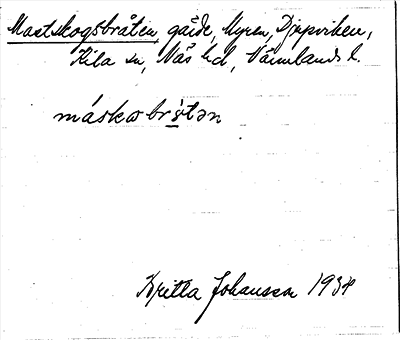 Mastskogsbråten, gärde, Myren, Djupviken,
Kila sn, Näs hd, Värmlands l.
máskobrɷ́tən
Britta Johansson 1934